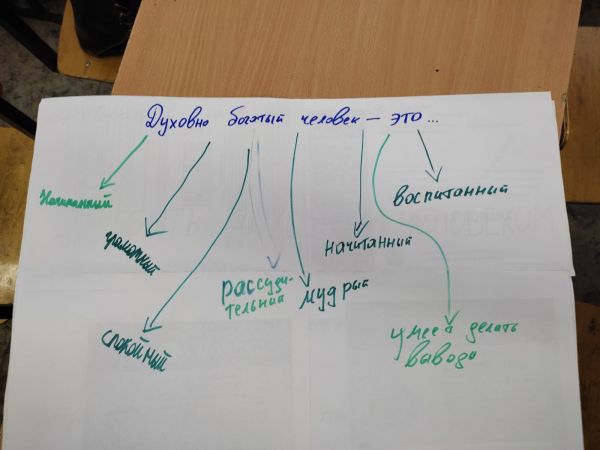 Духовно богатый человек — это...
Начитанный
грамотный
спокойный
рассуди-
тельный
мудрый
начитанный
воспитанный
умеет делать
выводы